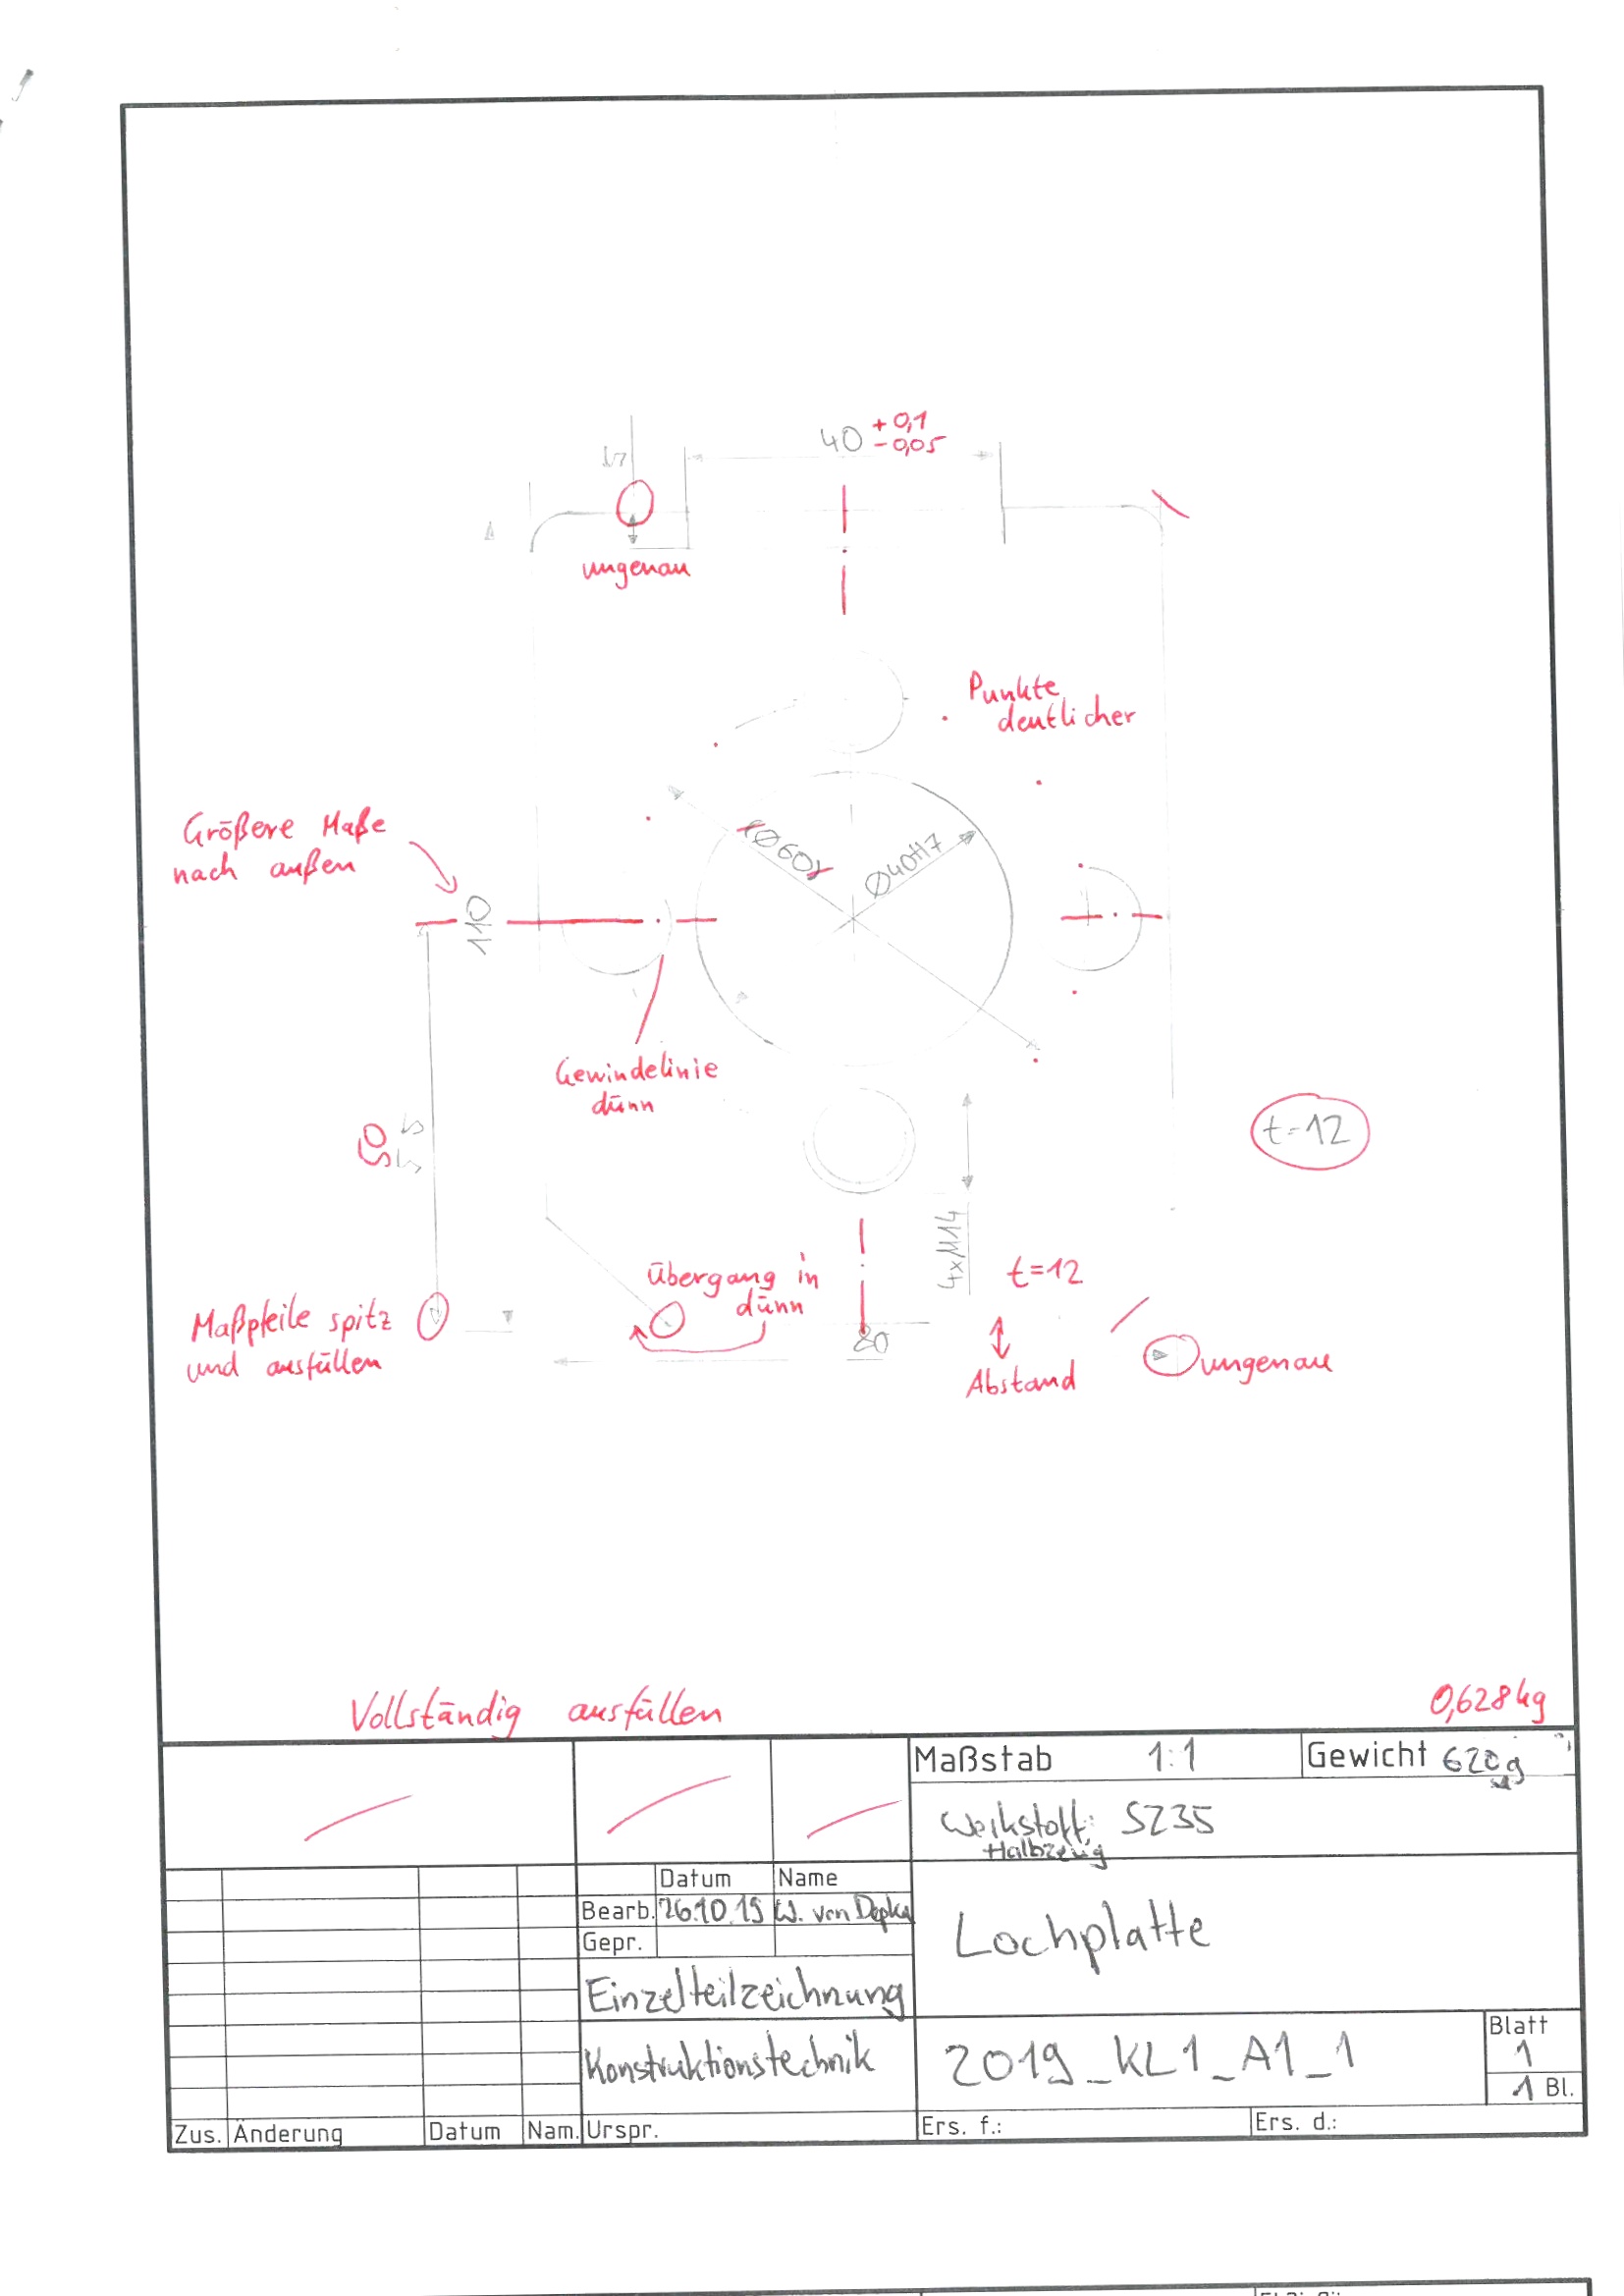 40 + 0,1
- 0,05
5
ungenau
Punkte
deutlicher
Größere Maße
nach außen
Ø60
Ø40H7
110
Gewindelinie
dünn
55
t=12
4xM14
t=12
Übergang in
dünn
Maßpfeile spitz
und ausfüllen
80
Abstand
ungenau
Vollständig ausfüllen
0,628kg
Maßstab 1:1
Gewicht 620g
Werkstoff: S235
Halbzeug
Datum Name
Bearb. 26.10.19 W. von Depka
Gepr.
Lochplatte
Einzelteilzeichnung
Konstruktionstechnik
2019_KL1_A1_1
Blatt
1
1 Bl.
Zus. Änderung Datum Nam. Urspr. Ers. f.: Ers. d.: